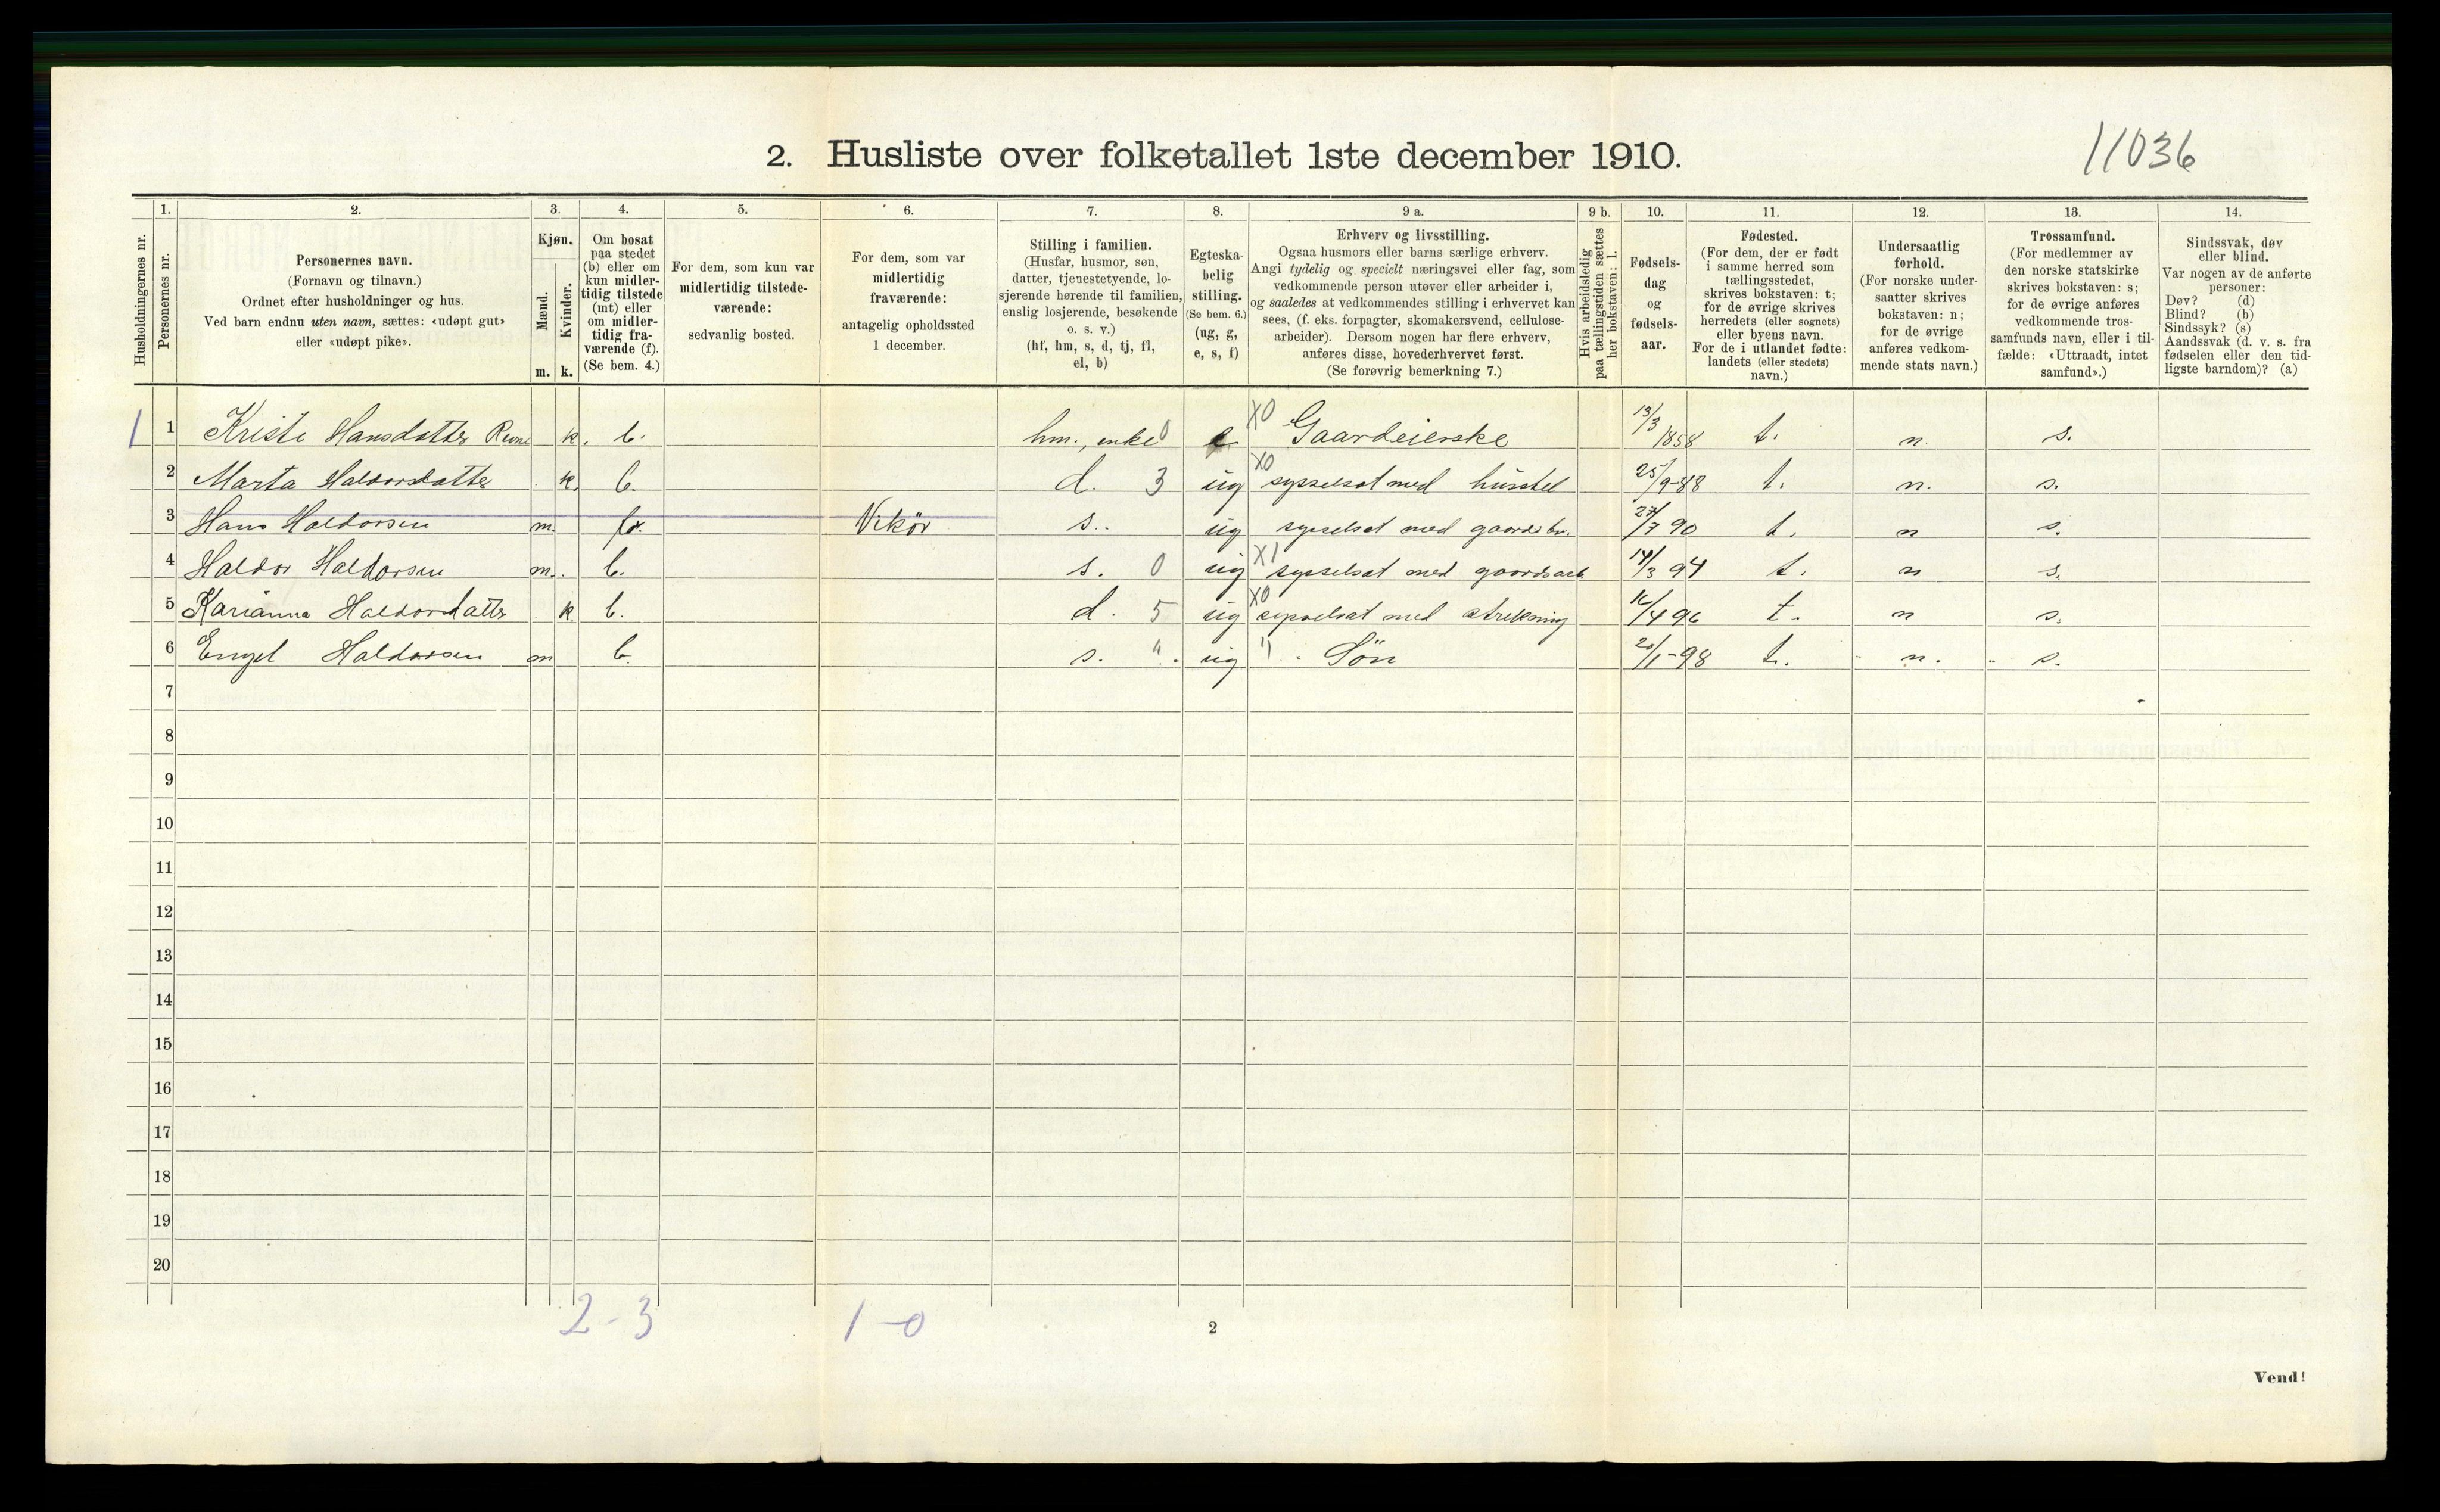 2. Husliste over folketallet 1ste december 1910.
11036
Husholdningernes nr.
1.
Personernes nr.
2.
Personernes navn.
(Fornavn og tilnavn.)
Ordnet efter husholdninger og hus.
Ved barn endnu uten navn, sættes: «udøpt gut»
eller «udøpt pike».
3.
Kjøn.
Mænd.
Kvinder.
m. k.
4.
Om bosat
paa stedet
(b) eller om
kun midler-
tidig tilstede
(mt) eller
om midler-
tidig fra-
værende (f).
(Se bem. 4.)
5.
For dem, som kun var
midlertidig tilstede-
værende:
sedvanlig bosted.
6.
For dem, som var
midlertidig
fraværende:
antagelig opholdssted
1 december.
7.
Stilling i familien.
(Husfar, husmor, søn,
datter, tjenestetyende, lo-
sjerende hørende til familien,
enslig losjerende, besøkende
o. s. v.)
(hf, hm, s, d, tj, fl,
el, b)
8.
Egteska-
belig
stilling.
(Se bem. 6.)
(ug, g,
e, s, f)
9 a.
Erhverv og livsstilling.
Ogsaa husmors eller barns særlige erhverv.
Angi tydelig og specielt næringsvei eller fag, som
vedkommende person utøver eller arbeider i,
og saaledes at vedkommendes stilling i erhvervet kan
sees, (f. eks. forpagter, skomakersvend, cellulose-
arbeider). Dersom nogen har flere erhverv,
anføres disse, hovederhvervet først.
(Se forøvrig bemerkning 7.)
9 b.
Hvis arbeidsledig
paa tællingstiden sættes
her bokstaven: l.
10.
Fødsels-
dag
og
fødsels-
aar.
11.
Fødested.
(For dem, der er født
i samme herred som
tællingsstedet,
skrives bokstaven: t;
for de øvrige skrives
herredets (eller sognets)
eller byens navn.
For de i utlandet fødte:
landets (eller stedets)
navn.)
12.
Undersaatlig
forhold.
(For norske under-
saatter skrives
bokstaven: n;
for de øvrige
anføres vedkom-
mende stats navn.)
13.
Trossamfund.
(For medlemmer av
den norske statskirke
skrives bokstaven: s;
for de øvrige anføres
vedkommende tros-
samfunds navn, eller i til-
fælde: «Uttraadt, intet
samfund».)
14.
Sindssvak, døv
eller blind.
Var nogen av de anførte
personer:
Døv? (d)
Blind? (b)
Sindssyk? (s)
Aandssvak (d. v. s. fra
fødselen eller den tid-
ligste barndom)? (a)
1 1 Kristi Hansdatter k. b. hm., enke 0 e X0 Gaardeierske 13/3 1858 t. n. s.
2 Marta Haldorsdatter k. b. d. 3 ug X0 sysselsat med husstel 25/9-88 t. n. s.
3 Hans Haldorsen m. Vikör s. ug sysselsat med 27/7 90 t. n s.
4 Haldor Haldorsen m. b. s. 0 ug X1 sysselsat med gaardsarb. 14/3 94 t. n s.
5 Karianna Haldorsdatter k. b. d. 5 ug X0 sysselsat med strikning 16/4 96 t. n s.
6 Engel Haldorsen m b. s. " ug " Sön 20/1-98 t. n. s.
7
8
9
10
11
12
13
14
15
16
17
18
19
20
2-3 1-0
2
Vend!